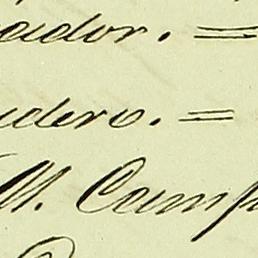 ador. =
dero. =
M. Camp